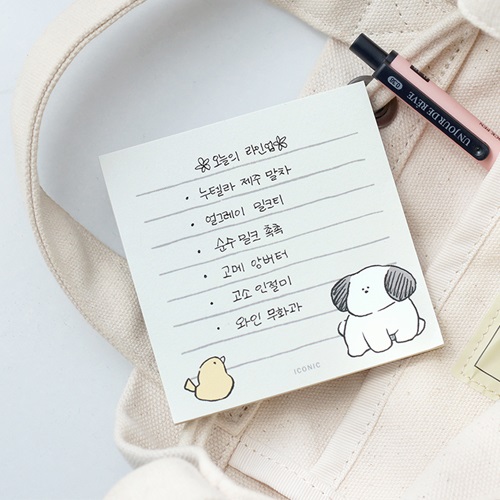 오늘의 라인업
• 누텔라 제주 말차
• 얼그레이 밀크티
• 순수 밀크 촉촉
• 고메 앙버터
• 고소 인절미
• 와인 무화과
ICONIC
UN JOUR DE RÊVE